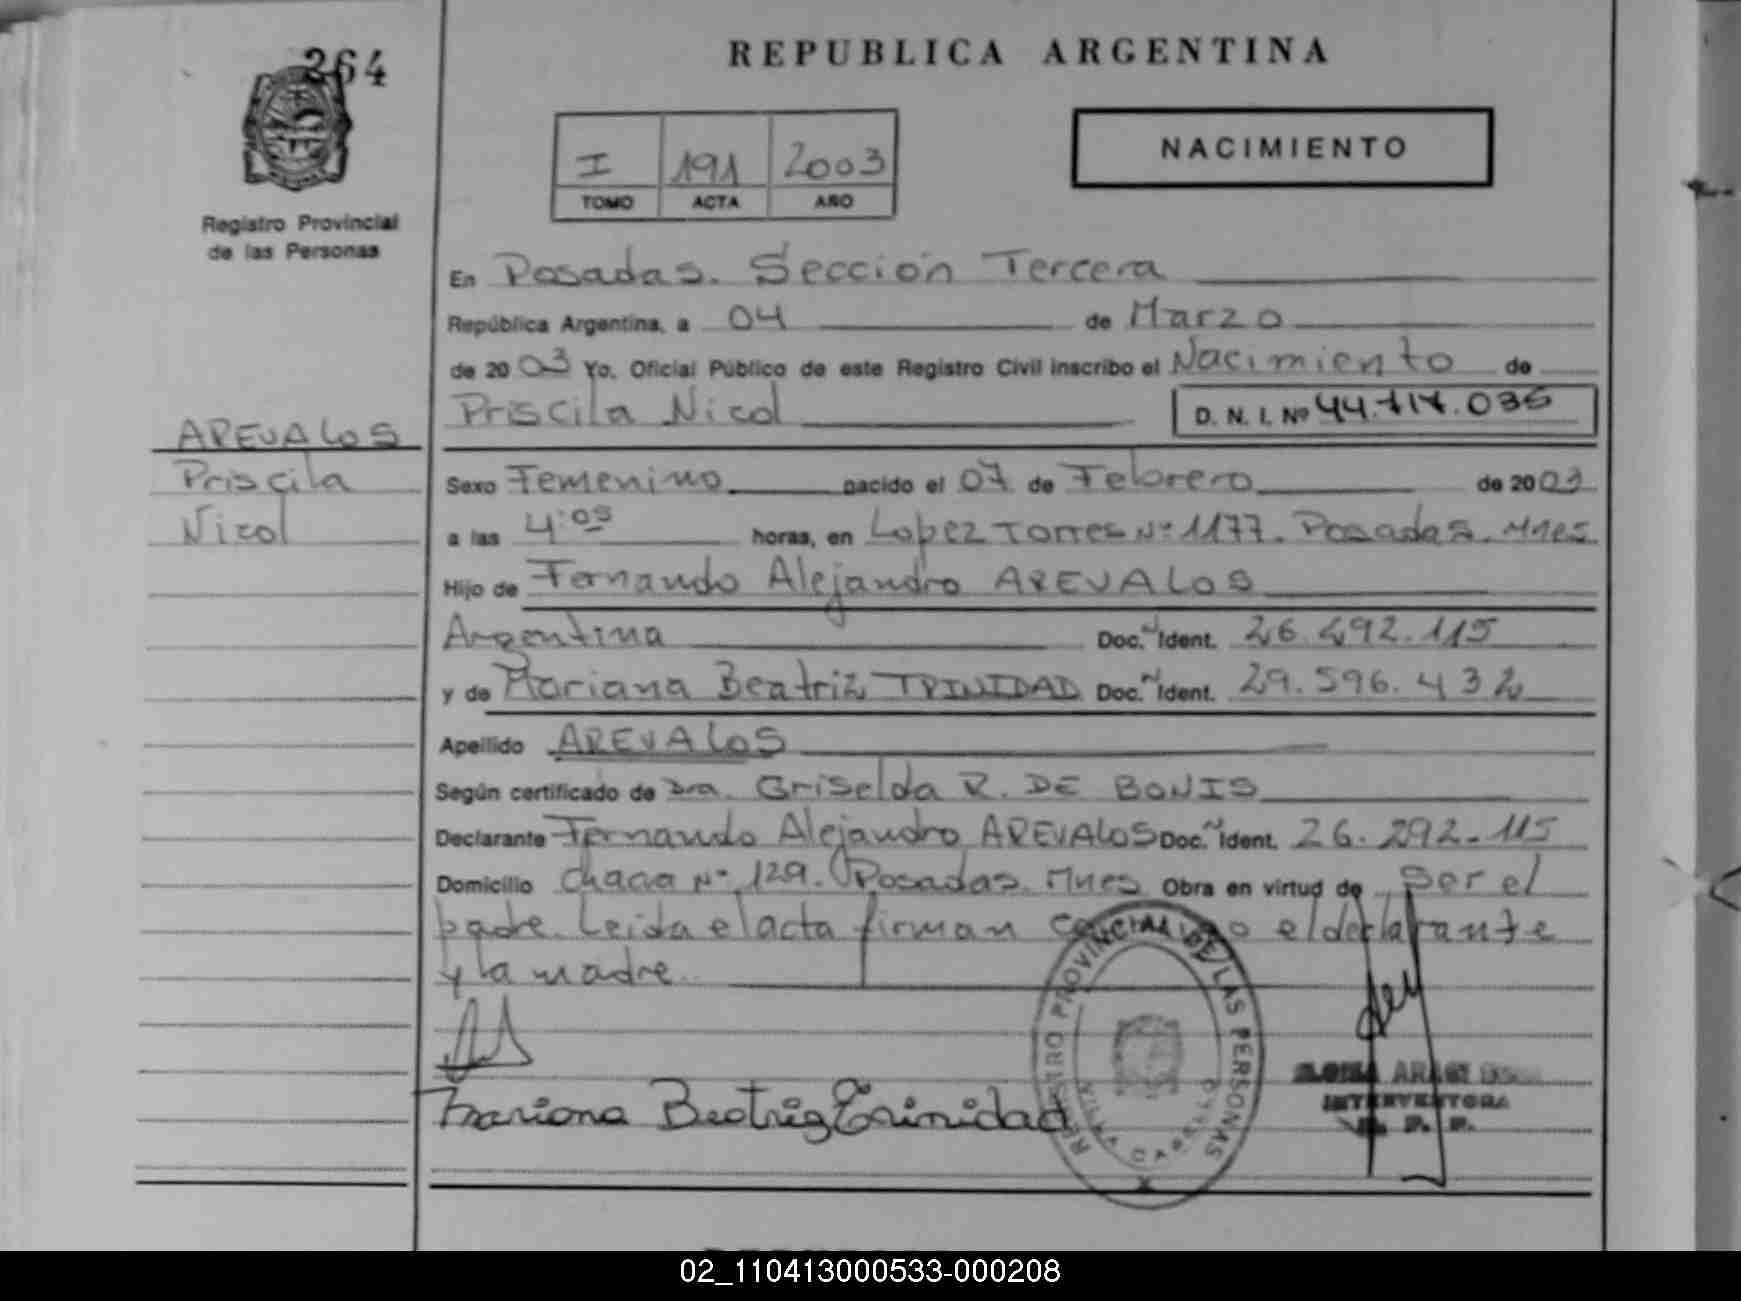 264
REPUBLICA ARGENTINA
I 191 2003
TOMO ACTA AÑO
NACIMIENTO
Registro Provincial
de las Personas
En Posadas. Sección Tercera
República Argentina, a 04 de Marzo
de 2003 Yo, Oficial Público de este Registro Civil inscribo el Nacimiento de
Priscila Nicol D. N. I. Nº 44.717.036
AREVALOS
Priscila
Nicol
Sexo Femenino nacido el 07 de Febrero de 2003
a las 4:05 horas, en Lopez Torres Nº 1177. Posadas. Mnes
Hijo de Fernando Alejandro AREVALOS
Argentina Doc. Ident. 26.292.115
y de Mariana Beatriz TRINIDAD Doc. Ident. 29.596.432
Apellido AREVALOS
Según certificado de Dra. Griselda R. DE BONIS
Declarante Fernando Alejandro AREVALOS Doc. Ident. 26.292.115
Domicilio Chacra Nº 129. Posadas. Mnes Obra en virtud de ser el
padre. Leida el acta firman conmigo el declarante
y la madre.
Mariana Beatriz Trinidad
REGISTRO PROVINCIAL DE LAS PERSONAS
VILLA CABELLO
INTERVENTORA
02_110413000533-000208